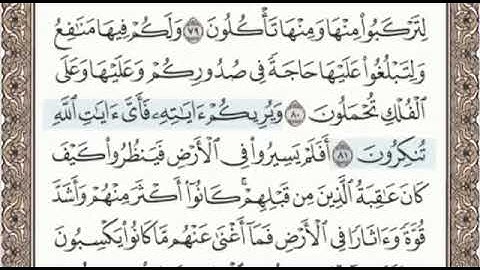 لِتَرْكَبُوا۟ مِنْهَا وَمِنْهَا تَأْكُلُونَ ٧٩ وَلَكُمْ فِيهَا مَنَٰفِعُ
وَلِتَبْلُغُوا۟ عَلَيْهَا حَاجَةً فِى صُدُورِكُمْ وَعَلَيْهَا وَعَلَى
ٱلْفُلْكِ تُحْمَلُونَ ٨٠ وَيُرِيكُمْ ءَايَٰتِهِۦ فَأَىَّ ءَايَٰتِ ٱللَّهِ
تُنكِرُونَ ٨١ أَفَلَمْ يَسِيرُوا۟ فِى ٱلْأَرْضِ فَيَنظُرُوا۟ كَيْفَ
كَانَ عَٰقِبَةُ ٱلَّذِينَ مِن قَبْلِهِمْ ۚ كَانُوٓا۟ أَكْثَرَ مِنْهُمْ وَأَشَدَّ
قُوَّةً وَءَاثَارًا فِى ٱلْأَرْضِ فَمَآ أَغْنَىٰ عَنْهُم مَّا كَانُوا۟ يَكْسِبُونَ